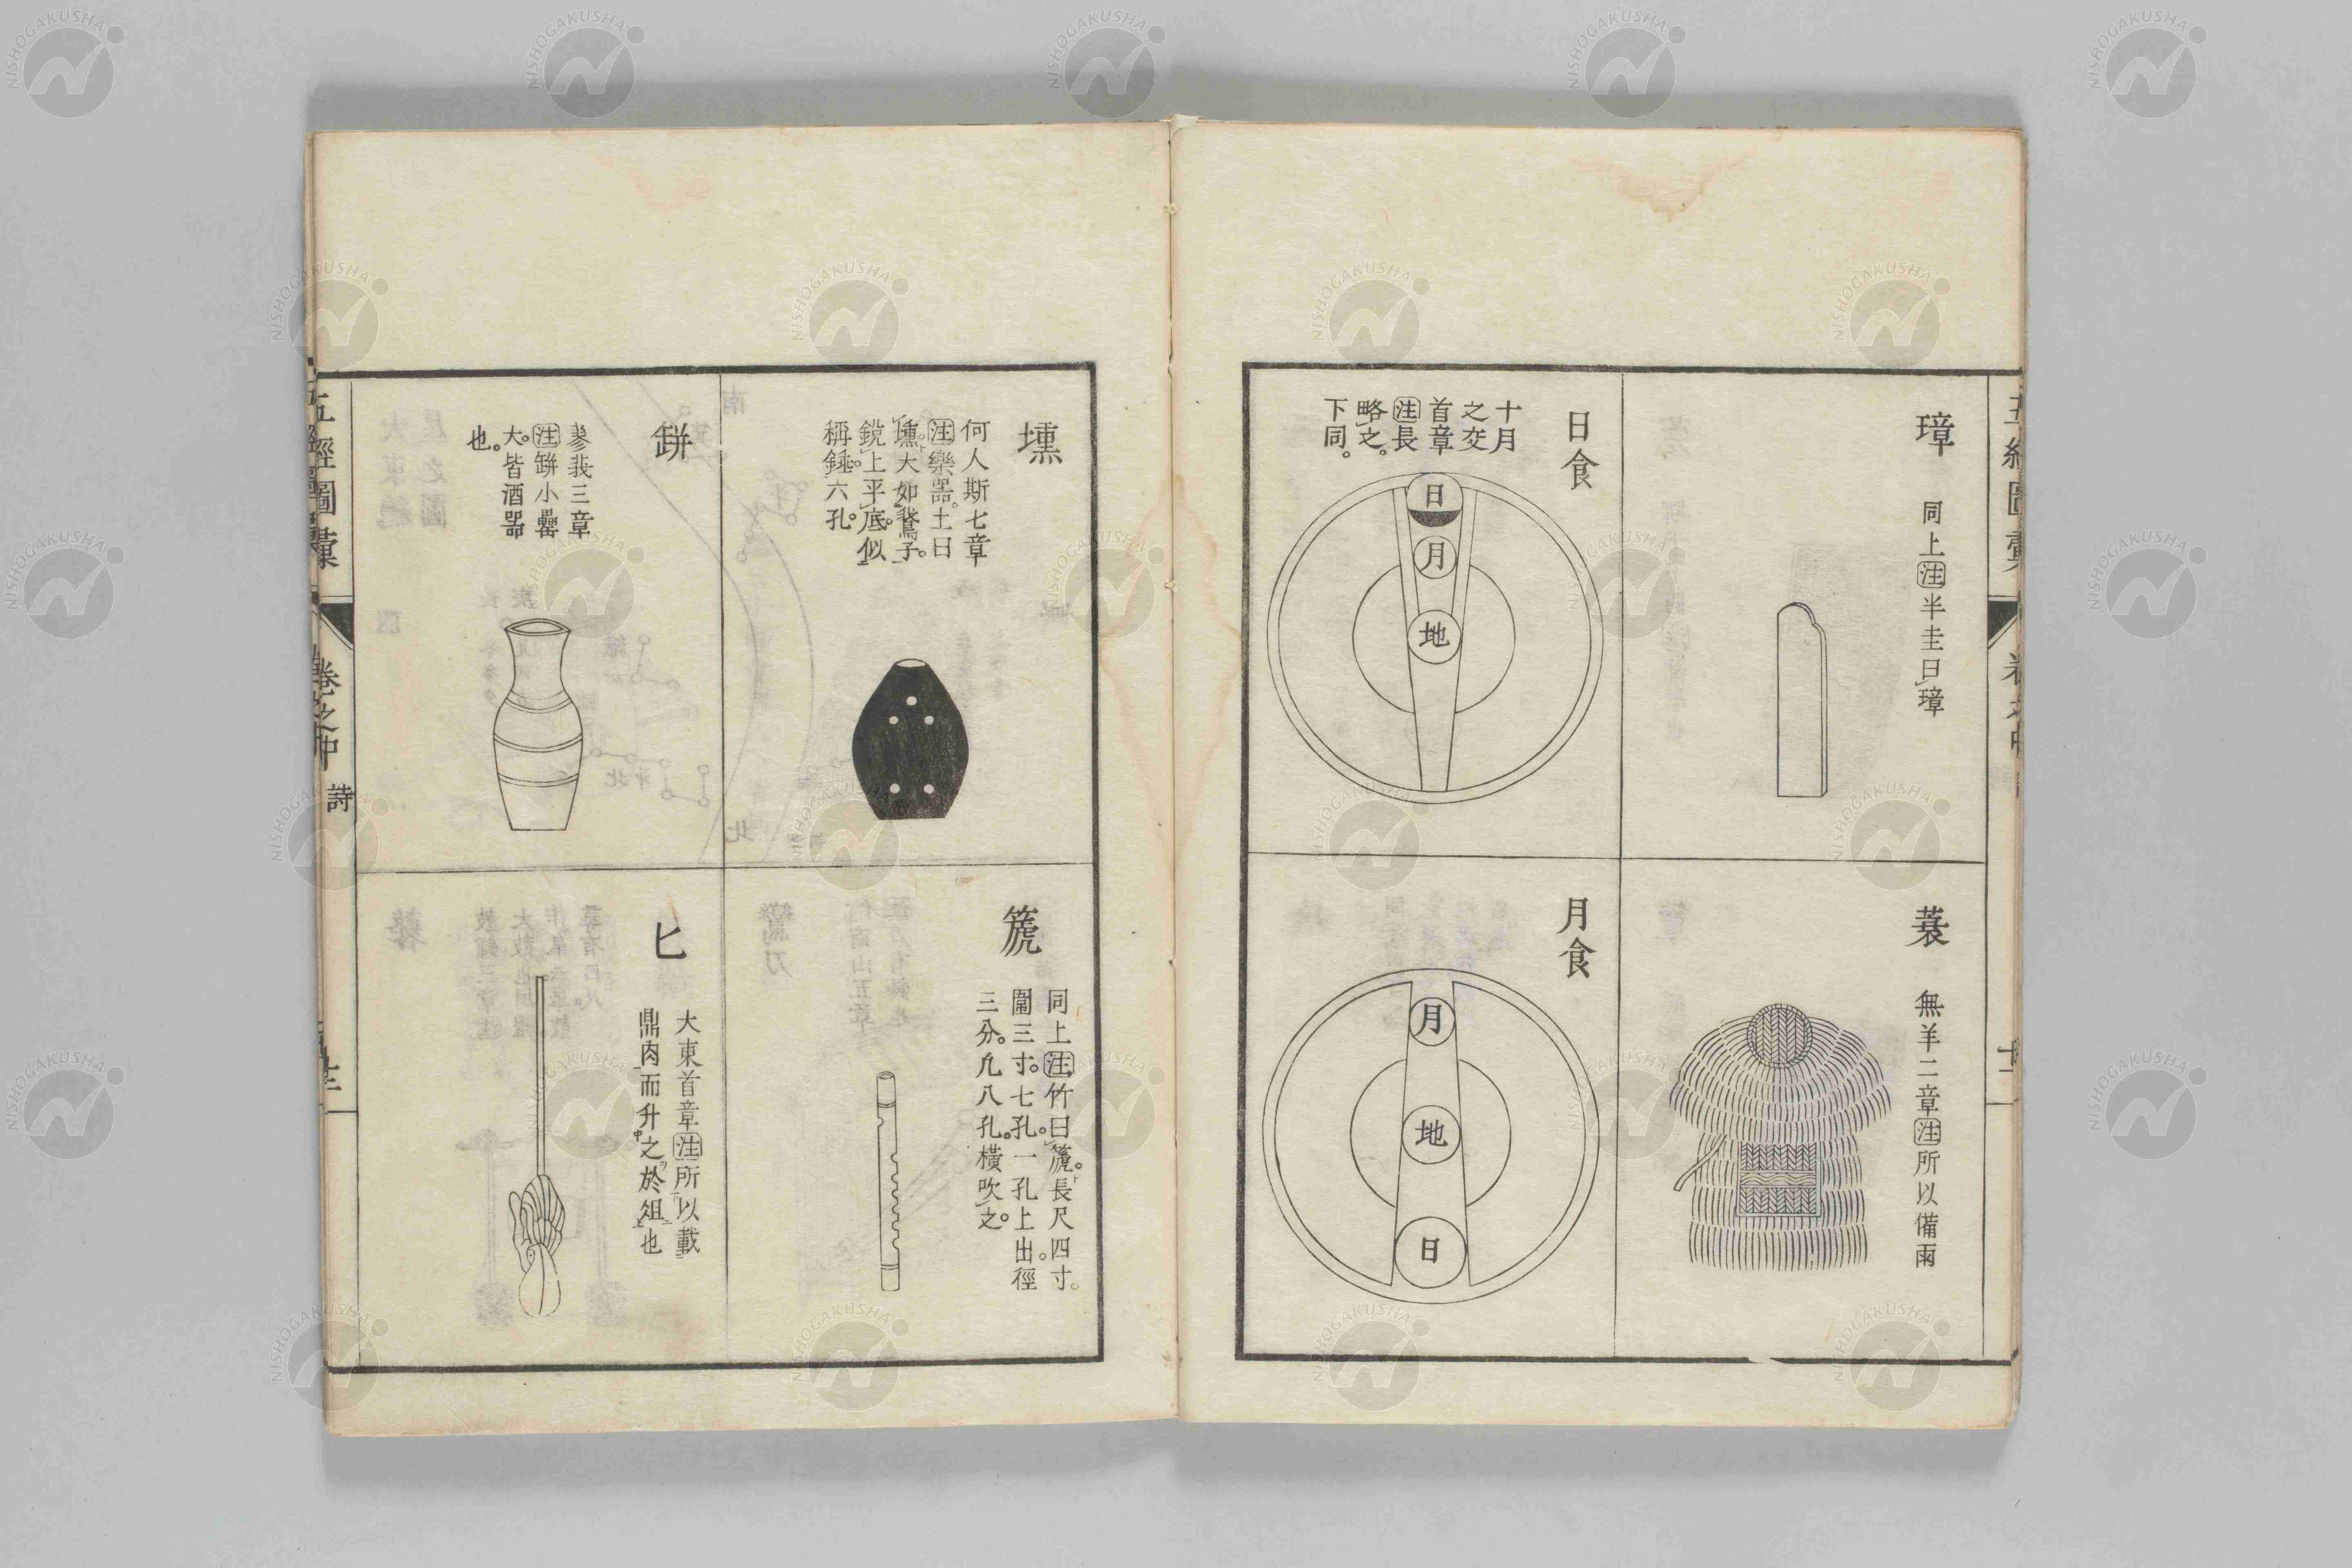 璋
同上注半圭曰璋
蓑
無羊二章注所以備雨
日食
十月
之交
首章
注長
略之。
下同。
日
月
地
月食
月
地
日
壎
何人斯七章
注樂器。土曰
壎大如鵞子。
銳上平底。似
稱錘。六孔。
篪
同上注竹曰篪。長尺四寸。
圍三寸。七孔。一孔上出。徑
三分。凢八孔。橫吹之。
缾
蓼莪三章
注缾小罍
大。皆酒器
也。
匕
大東首章注所以載
鼎肉而升之於俎也
五經圖彙
卷之中
詩
NISHOGAKUSHA